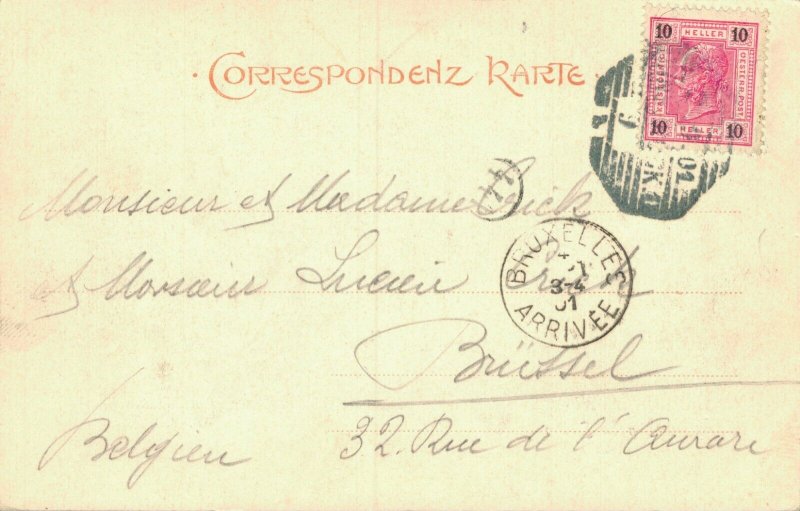 CORRESPONDENZ KARTE
10 HELLER 10
OESTERR.POST
10 HELLER 10
Monsieur et Madame Crick
et Monsieur Lucien Crick
BRUXELLES
3-4
01
ARRIVÉE
Brüssel
Belgien
32. Rue de l'Aurore